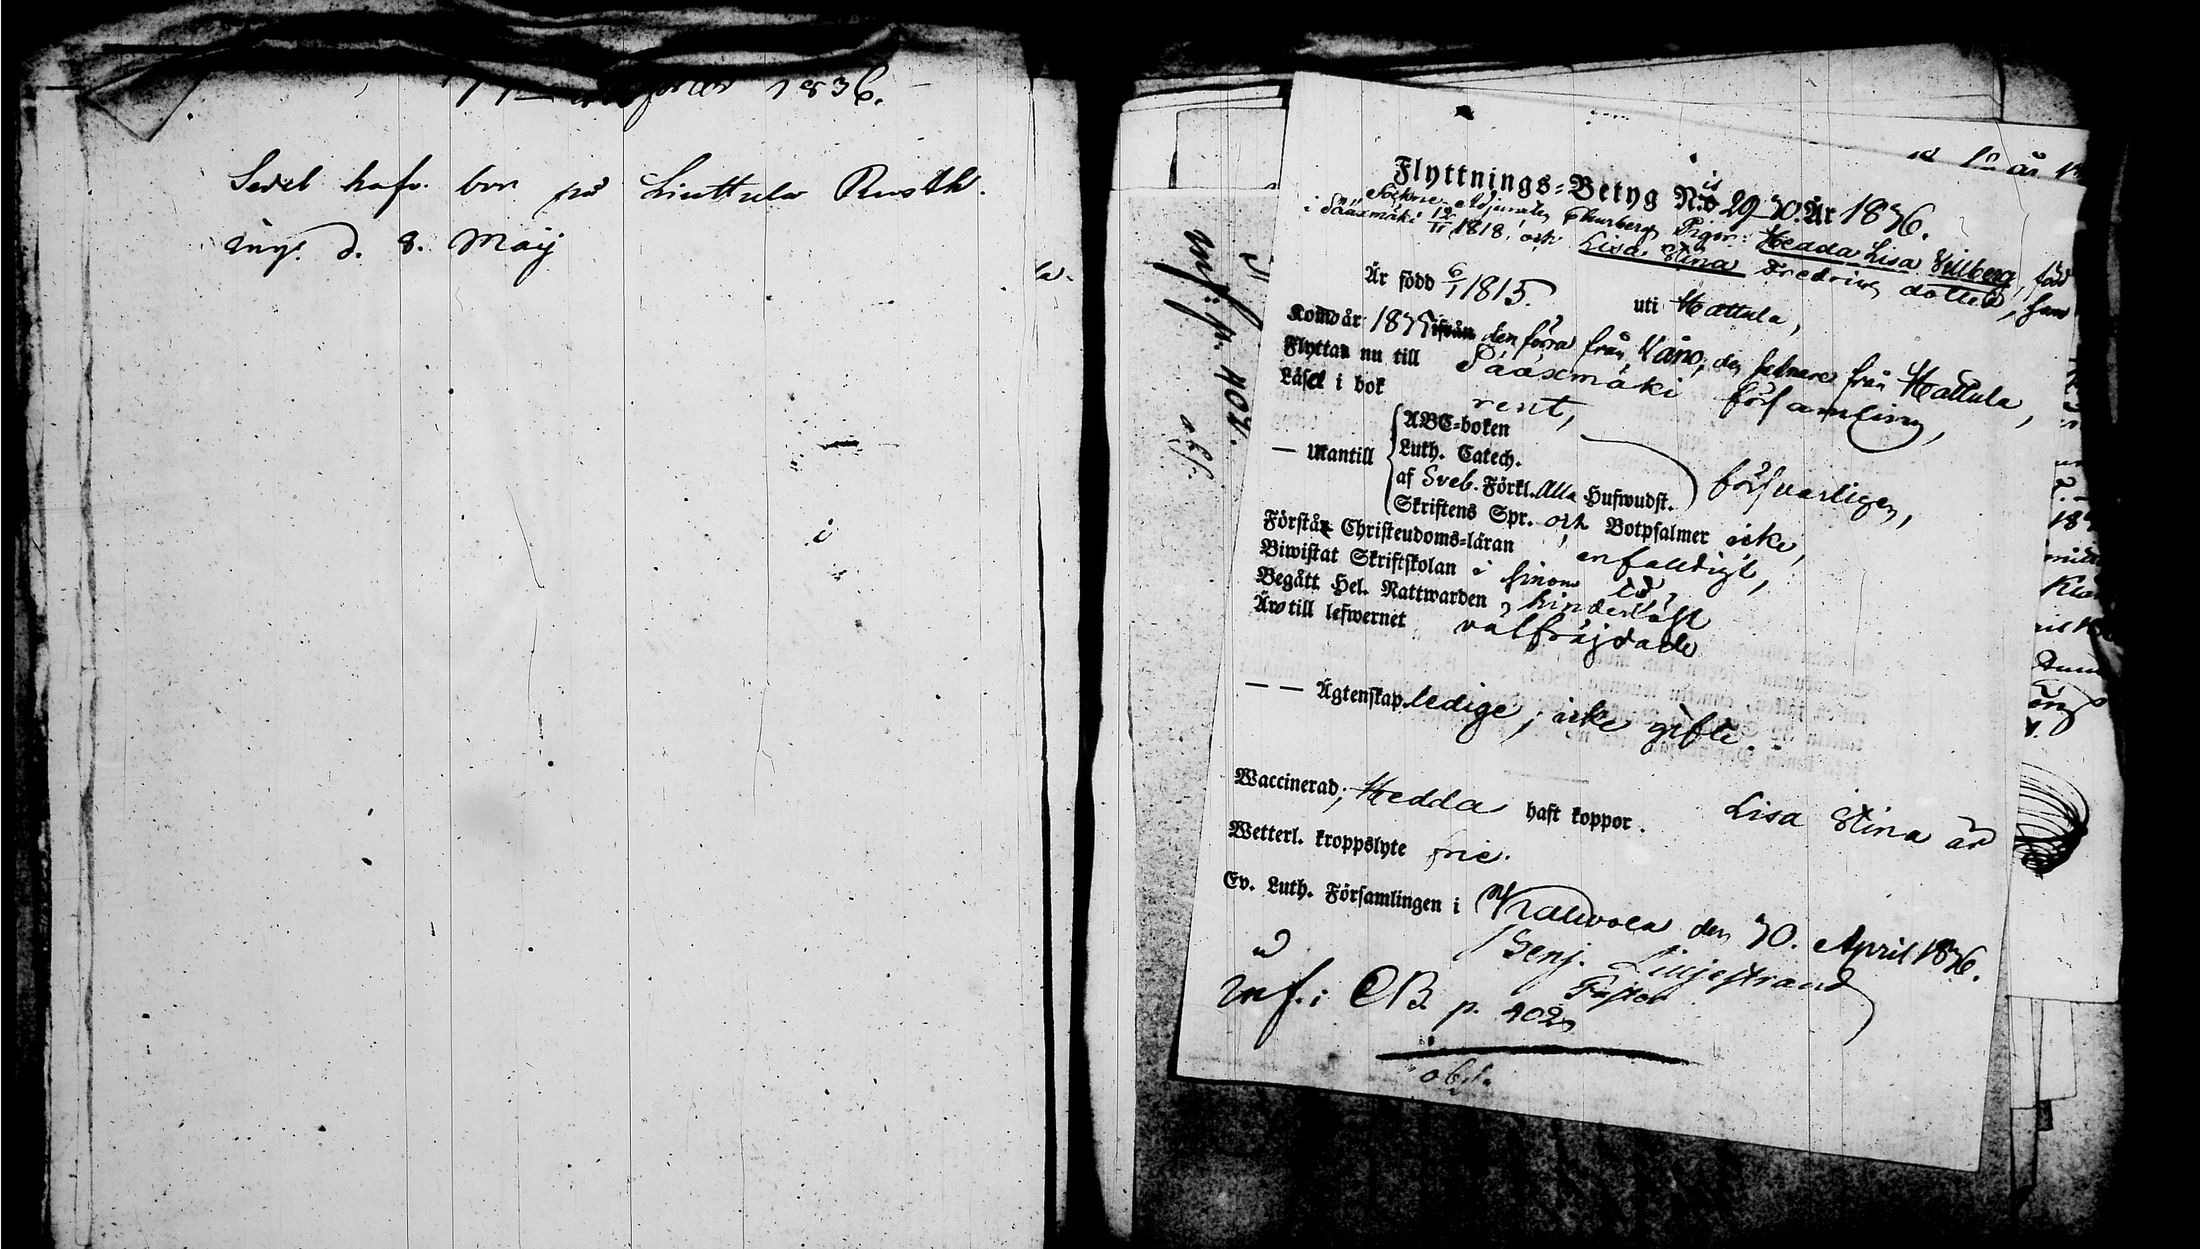 1836.
Sedel hafv. bor på Liuttula Rusth.
ing. d. 8. Maij
Flyttnings-Betyg N:is 29-30. År 1836.
Sockne Adjuncten Pigor: Hedda Lisa Villberg, född
i Sääxmäki 12/11 1818, och Lisa Stina Fredrics dotter, som
Är född 6/1 1815. uti Hattula,
Kommo år 1835 ifrån den förra från Vånå, den sednare från Hattula,
Flyttar nu till Sääxmäki församling,
Läser i bok rent,
— utantill
ABC-boken
Luth. Catech.
af Sveb. Förkl. Alla Hufwudst. försvarligen,
Skriftens Spr. och Botpsalmer icke,
Förstår Christendoms-läran enfaldigt,
Biwistat Skriftskolan i sinom tid,
Begått Hel. Nattwarden, hinderlöst
Äro till lefwernet välfräjdade
— — Ägtenskap ledige; icke gifte.
Waccinerad; Hedda haft koppor. Lisa Stina är
Wetterl. kroppslyte frie.
Ev. Luth. Församlingen i Kalvola den 30. April 1836.
Benj. Liljestrand
Pastor
Inf. i CB. p. 402
obs.
inf. p. 402.
obs.